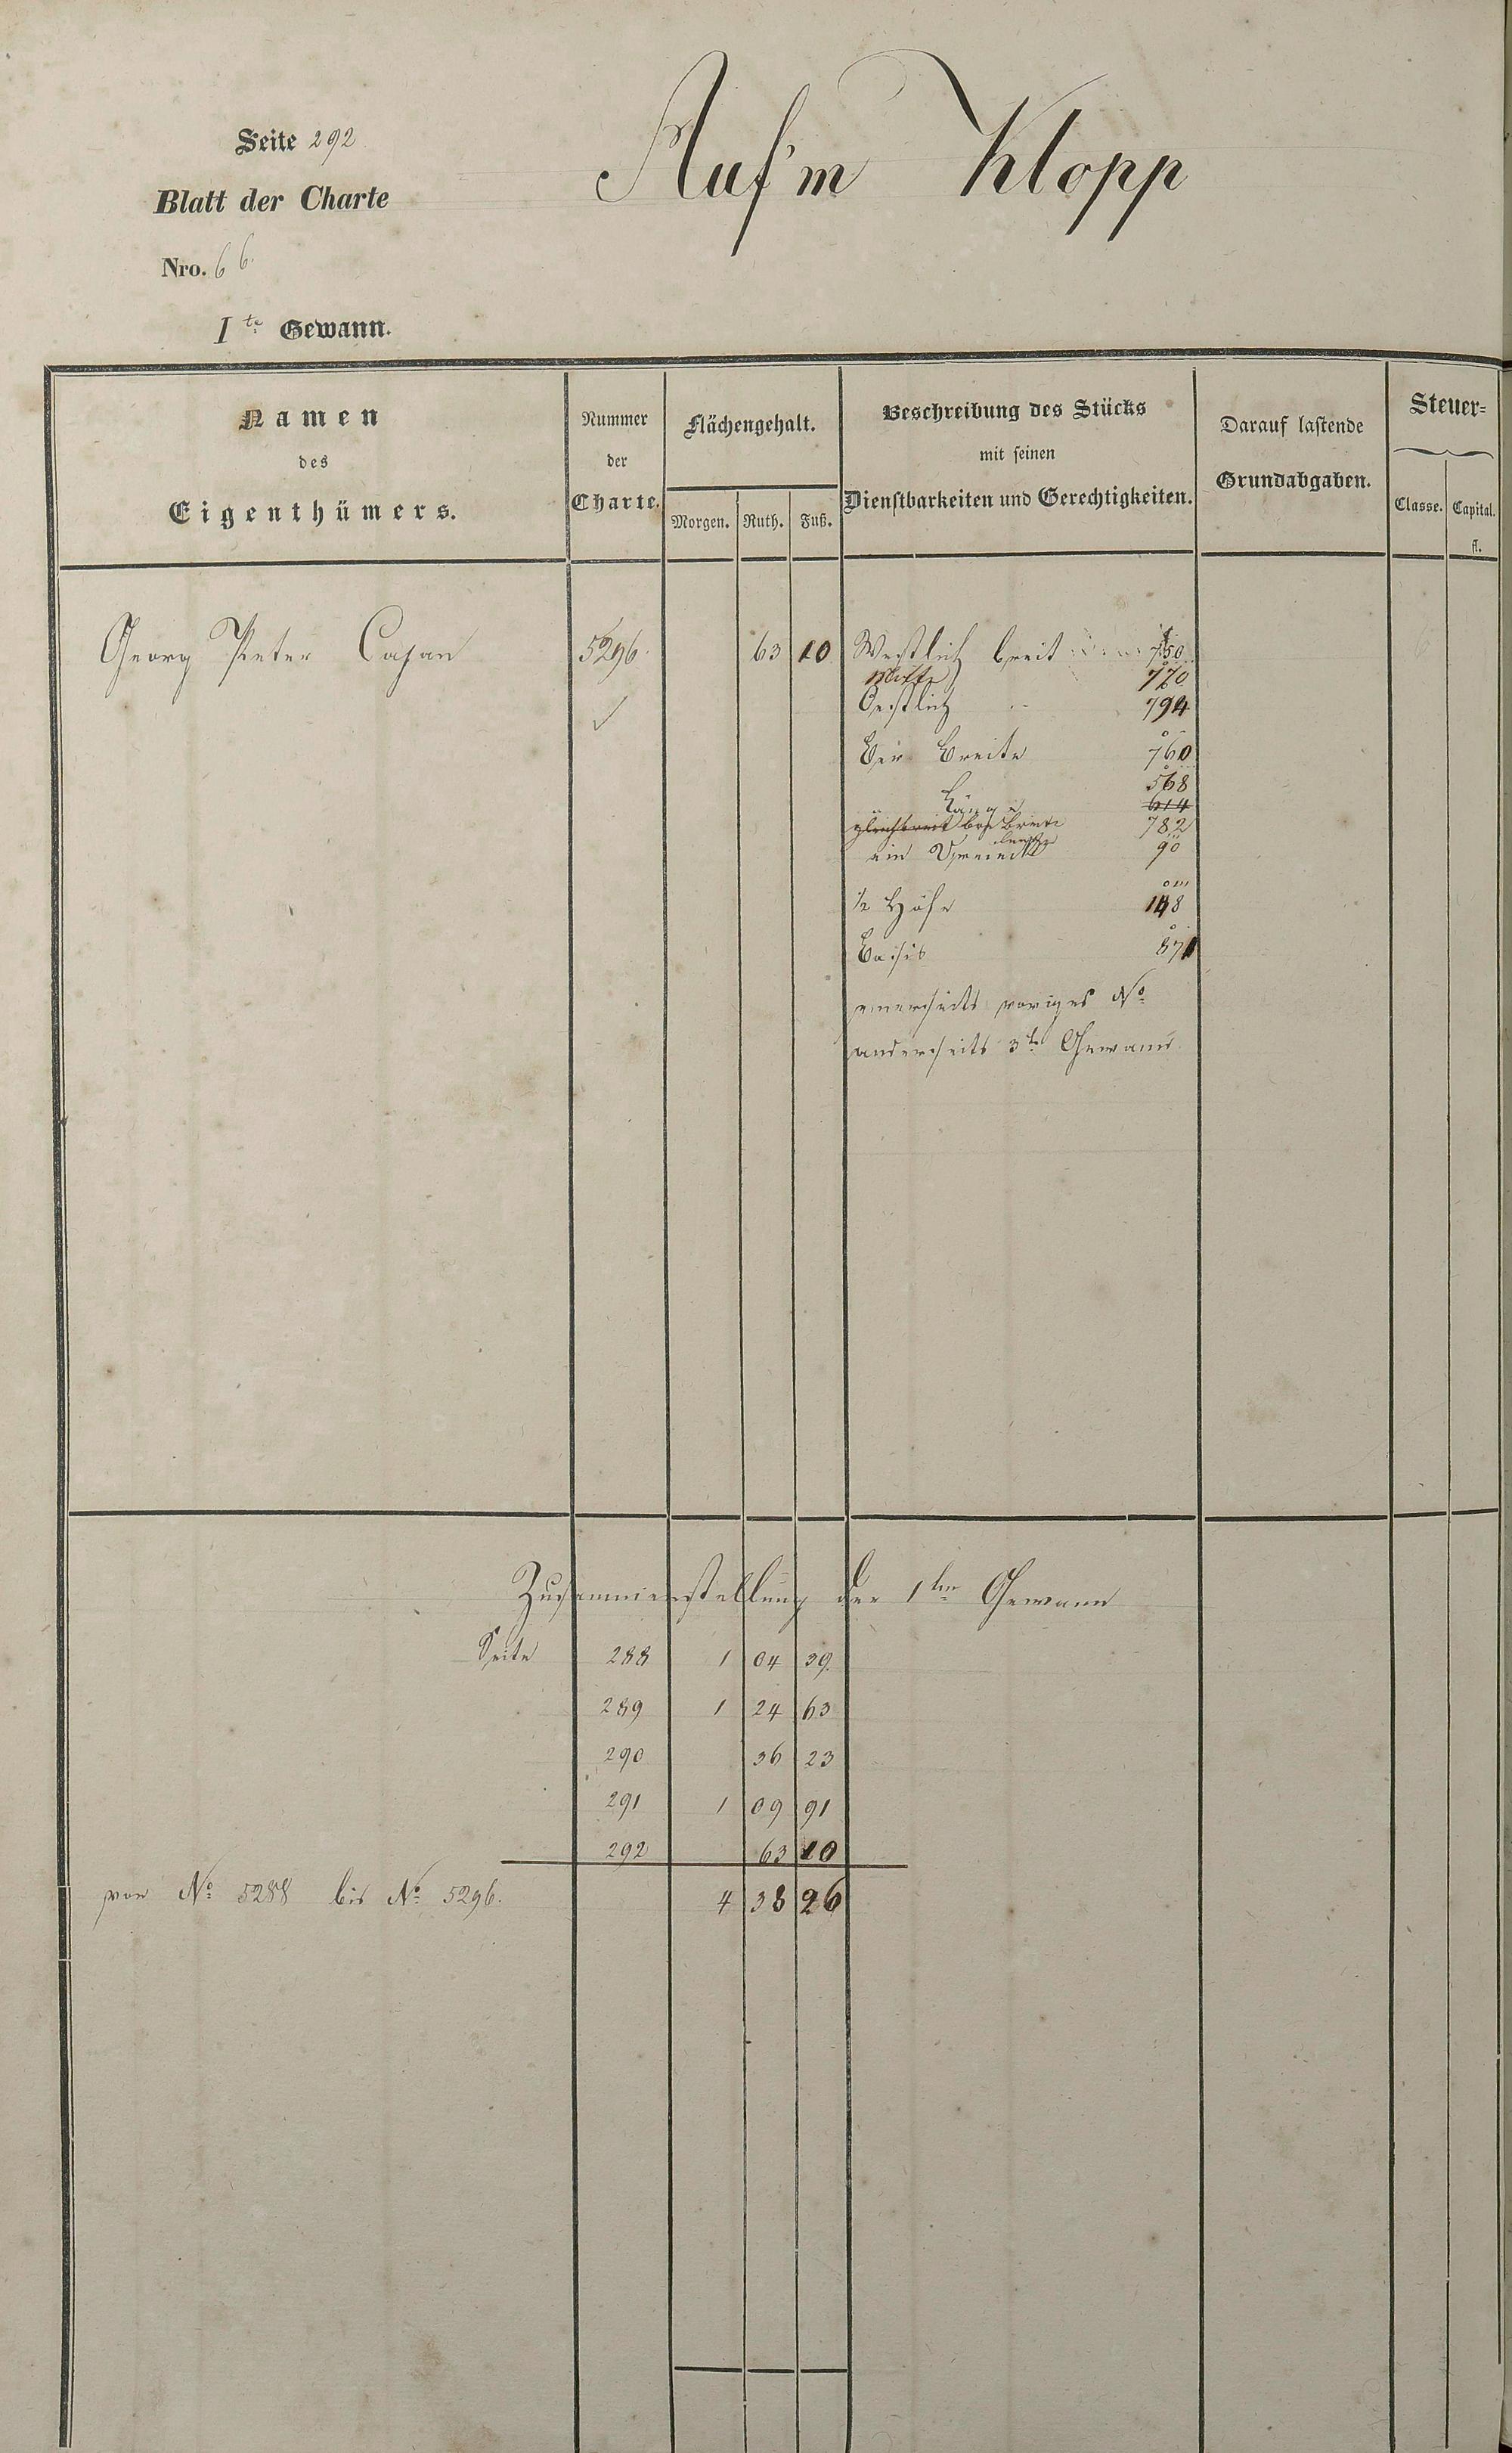 Seite 292
Auf'm Klopp
Blatt der Charte
Nro. 66.
I te Gewann.
Namen
des
Eigenthümers.
Nummer
der
Charte.
Flächengehalt.
Morgen. Ruth. Fuß.
Beschreibung des Stücks
mit seinen
Dienstbarkeiten und Gerechtigkeiten.
Darauf lastende
Grundabgaben.
Steuer-
Classe. Capital.
fl.
Georg Peter Cajan 5296. 63 10 Westlich breit 750
Mitte 770
Oestlich 794
Breite 760
568
Länge 614
782
ein Dreieck 90
1/2 Höhe 148
Basis 871
einerseits voriges No
anderseits 3te Gewann
Zusammenstellung der 1ten Gewann
Seite 288 1 04 39.
289 1 24 63
290 36 23
291 1 09 91
292 63 10
von No 5288 bis No 5296. 4 38 26